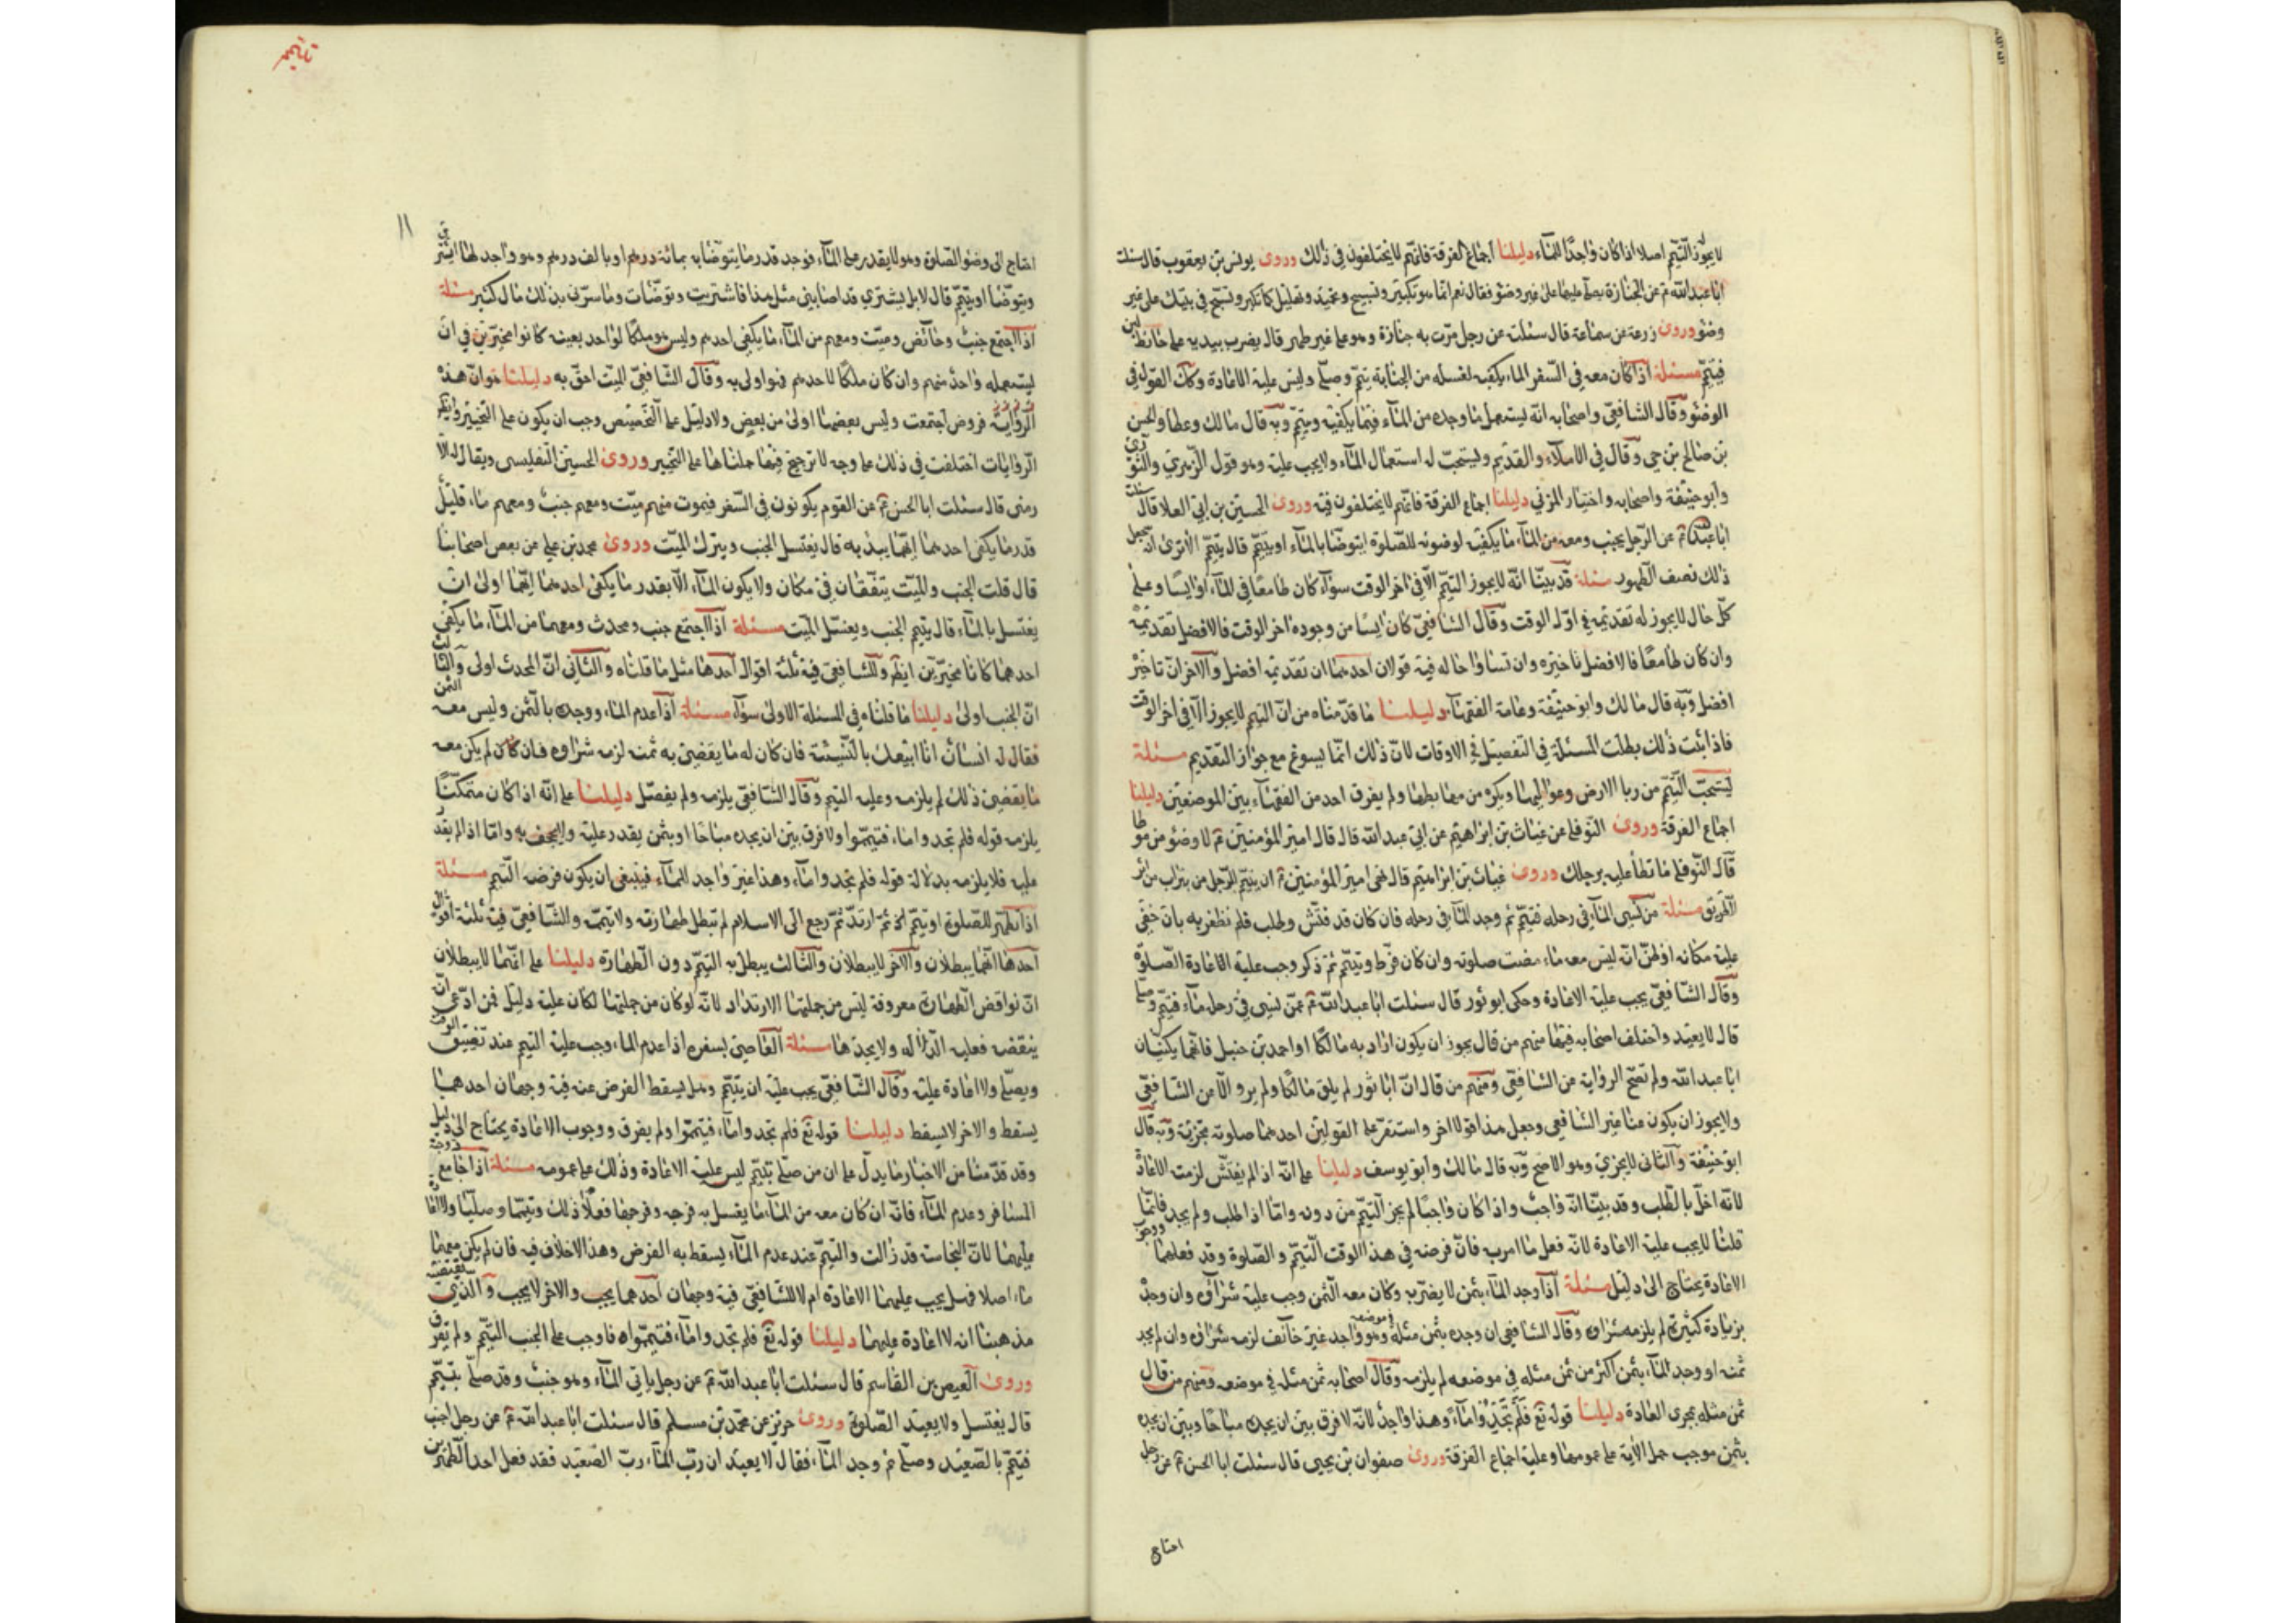 لا يجوز التيمم اصلا اذا كان واجدًا للمآء دليلنا اجماع الفرقة فانهم لا يختلفون في ذلك وروى يونس بن يعقوب قال سئلت
ابا عبد الله ع عن الجنازة يصلى عليها على غير وضوء فقال نعم انما هو تكبير وتسبيح وتحميد وتهليل كما تكبر وتسبح في بيتك على غير
وضوء وروى زرعة عن سماعة قال سئلت عن رجل مرت به جنازة وهو على غير طهر قال يضرب بيديه على حائط لبن
فيتيمم مسئلة اذا كان معه في السفر الماء يكفيه لغسله من الجنابة تيمم وصلى وليس عليه الاعادة وكك القول في
الوضوء وقال الشافعي واصحابه انه يستعمل ما وجده من المآء فيما يكفيه ويتيمم وبه قال مالك وعطا والحسن
بن صالح بن حي وقال في الاملآء والقديم ويستحب له استعمال المآء ولا يجب عليه وهو قول الزهري والثوري
وابو حنيفة واصحابه واختيار المزني دليلنا اجماع الفرقة فانهم لا يختلفون فيه وروى الحسين بن ابي العلا قال سئلت
ابا عبد الله ع عن الرجل يجنب ومعه من المآء ما يكفيه لوضوئه للصلوة ايتوضأ بالمآء او يتيمم قال يتيمم الا ترى انه جعل
ذلك نصف الطهور مسئلة قد بينا انه لا يجوز التيمم الا في اخر الوقت سوآء كان طامعا في المآء او ايسا وعلى
كل حال لا يجوز له تقديمه في اول الوقت وقال الشافعي كان ايسا من وجوده اخر الوقت فالافضل تقديمه
وان كان طامعًا فالافضل تاخيره وان تساوا حاله فيه قولان احدهما ان تقديمه افضل والآخر ان تاخيره
افضل وبه قال مالك وابو حنيفة وعامة الفقهآء دليلنا ما قدمناه من ان التيمم لا يجوز الا في اخر الوقت
فاذا ثبت ذلك بطلت المسئلة في التفصيل في الاوقات لان ذلك انما يسوغ مع جواز التقديم مسئلة
يستحب التيمم من ربا الارض وعواليها ويكره من مهابطها ولم يفرق احد من الفقهآء بين الموضعين دليلنا
اجماع الفرقة وروى النوفلي عن غياث بن ابراهيم عن ابي عبد الله قال قال امير المؤمنين ع لا وضوء من موطا
قال النوفلي ما تطأ عليه برجلك وروى غياث بن ابراهيم قال نهى امير المؤمنين ع ان يتيمم الرجل من تراب من اثر
الطريق مسئلة من نسى المآء في رحله فتيمم ثم وجد المآء في رحله فان كان قد فتش وطلب فلم يظفر به بان خفى
عليه مكانه او ظن انه ليس معه ماء مضت صلوته وان كان فرط وتيمم ثم ذكر وجب عليه اعادة الصلوة
وقال الشافعي يجب عليه الاعادة وحكى ابو ثور قال سئلت ابا عبد الله ع عمن نسى في رحله مآء فتيمم وصلى
قال لا يعيد واختلف اصحابه فيها منهم من قال يجوز ان يكون اراد به مالكًا او احمد بن حنبل فانهما يكنيان
ابا عبد الله ولم تصح الرواية عن الشافعي ومنهم من قال ان ابا ثور لم يلق مالكًا ولم يرو الا عن الشافعي
ولا يجوز ان يكون عنا غير الشافعي وجعل هذا قولا اخر واستقر على القولين احدهما صلوته مجزية وبه قال
ابو حنيفة والثاني لا يجزي وهو الاصح وبه قال مالك وابو يوسف دليلنا على انه اذا لم يفتش لزمته الاعادة
لانه اخل بالطلب وقد بينا انه واجب واذا كان واجبًا لم يجز التيمم من دونه واما اذا طلب ولم يجد فانما
قلنا لا يجب عليه الاعادة لانه فعل ما امر به فان فرضه في هذا الوقت التيمم والصلوة وقد فعلهما ووجوب
الاعادة يحتاج الى دليل مسئلة اذا وجد المآء بثمن لا يضر به وكان معه الثمن وجب عليه شرآؤه وان وجده
بزيادة كثيرة لم يلزمه شراؤه وقال الشافعي ان وجده بثمن مثله في موضعه وهو واجد غير خائف لزمه شراؤه وان لم يجد
ثمنه او وجد المآء بثمن اكثر من ثمن مثله في موضعه لم يلزمه وقال اصحابه ثمن مثله في موضعه ومنهم من قال
ثمن مثله بمجرى العادة دليلنا قوله تع فلم تجدوا مآءً وهذا واجد لانه لا فرق بين ان يجده مباحًا وبين ان يجده
بثمن موجب حمل الآية على عمومها وعليه اجماع الفرقة وروى صفوان بن يحيى قال سئلت ابا الحسن ع عن رجل
احتاج
تيمم
١١
احتاج الى وضوء الصلوة وهو لا يقدر على المآء فوجد قدر ما يتوضا به بمائة درهم او بالف درهم وهو واجد لها ايشتري
ويتوضأ او يتيمم قال لا بل يشتري قد اصابني مثل هذا فاشتريت وتوضأت وما سرني بذلك مال كثير مسئلة
اذا اجتمع جنب وحائض وميت ومعهم من المآء ما يكفي احدهم وليس هو ملكًا لواحد بعينه كانوا مخيرين في ان
يستعمله واحد منهم وان كان ملكًا لاحدهم فهو اولى به وقال الشافعي الميت احق به دليلنا هو ان هذه
الرواية فروض اجتمعت وليس بعضها اولى من بعض ولا دليل على التخصيص وجب ان يكون على التخيير وايضًا
الروايات اختلفت في ذلك على وجه لا ترجيح فيها حملناها على التخيير وروى الحسين التفليسي ويقال له الا
رمنى قال سئلت ابا الحسن ع عن القوم يكونون في السفر فيموت منهم ميت ومعهم جنب ومعهم ماء قليل
قدر ما يكفى احدهما ايهما يبدء به قال يغتسل الجنب ويترك الميت وروى محمد بن علي عن بعض اصحابنا
قال قلت الجنب والميت يتفقان في مكان ولا يكون المآء الا بقدر ما يكفي احدهما ايهما اولى ان
يغتسل بالمآء قال يتيمم الجنب ويغسل الميت مسئلة اذا اجتمع جنب ومحدث ومعهما من المآء ما يكفي
احدهما كانا مخيرين ايضا وللشافعي فيه ثلثة اقوال احدها مثل ما قلناه والثاني ان المحدث اولى والثالث
ان الجنب اولى دليلنا ما قلناه في المسئلة الاولى سوآء مسئلة اذا عدم الماء ووجده بالثمن وليس معه الثمن
فقال له انسان انا ابيعك بالنسيئة فان كان له ما يقضي به ثمنه لزمه شراؤه فان كان لم يكن معه
ما يقضي ذلك لم يلزمه وعليه التيمم وقال الشافعي يلزمه ولم يفصل دليلنا على انه اذا كان متمكنًا
يلزمه قوله فلم تجدوا ماء فتيمموا ولا فرق بين ان يجده مباحًا او بثمن يقدر عليه ولا يجحف به واما اذا لم يقدر
عليه فلا يلزمه بدلالة قوله فلم تجدوا ماء وهذا غير واجد للمآء فينبغي ان يكون فرضه التيمم مسئلة
اذا تطهر للصلوة او تيمم ثم ارتد ثم رجع الى الاسلام لم تبطل طهارته ولا تيممه والشافعي فيه ثلثة اقوال
احدها انهما يبطلان والآخر لا يبطلان والثالث يبطل به التيمم دون الطهارة دليلنا على انهما لا يبطلان
ان نواقض الطهارة معروفة ليس من جملتها الارتداد لانه لو كان من جملتها لكان عليه دليل فمن ادعى انه
ينقضه فعليه الدلالة ولا يجدها مسئلة العاصي بسفره اذا عدم الماء وجب عليه التيمم عند تضييق الوقت
ويصلي ولا اعادة عليه وقال الشافعي يجب عليه ان يتيمم وهل يسقط الفرض عنه فيه وجهان احدهما
يسقط والاخر لا يسقط دليلنا قوله تع فلم تجدوا ماء فتيمموا ولم يفرق ووجوب الاعادة يحتاج الى دليل
وقد قدمنا من الاخبار ما يدل على ان من صلى بتيمم ليس عليه الاعادة وذلك على عمومه مسئلة اذا جامع زوجته
المسافر وعدم المآء فانه ان كان معه من المآء ما يغسل به فرجه وفرجها فعلا ذلك وتيمما وصليا ولا اعادة
عليهما لان النجاسة قد زالت والتيمم عند عدم المآء يسقط به الفرض وهذا لا خلاف فيه فان لم يكن معهما
ماء اصلا فهل يجب عليهما الاعادة ام لا للشافعي فيه وجهان احدهما يجب والاخر لا يجب والذي يقتضيه
مذهبنا انه لا اعادة عليهما دليلنا قوله تع فلم تجدوا مآء فتيمموا فاوجب على الجنب التيمم ولم يفرق
وروى العيص بن القاسم قال سئلت ابا عبد الله ع عن رجل ياتي المآء وهو جنب وقد صلى بتيمم
قال يغتسل ولا يعيد الصلوة وروى حريز عن محمد بن مسلم قال سئلت ابا عبد الله ع عن رجل اجنب
فتيمم بالصعيد وصلى ثم وجد المآء فقال لا يعيد ان رب المآء رب الصعيد فقد فعل احد الطهرين